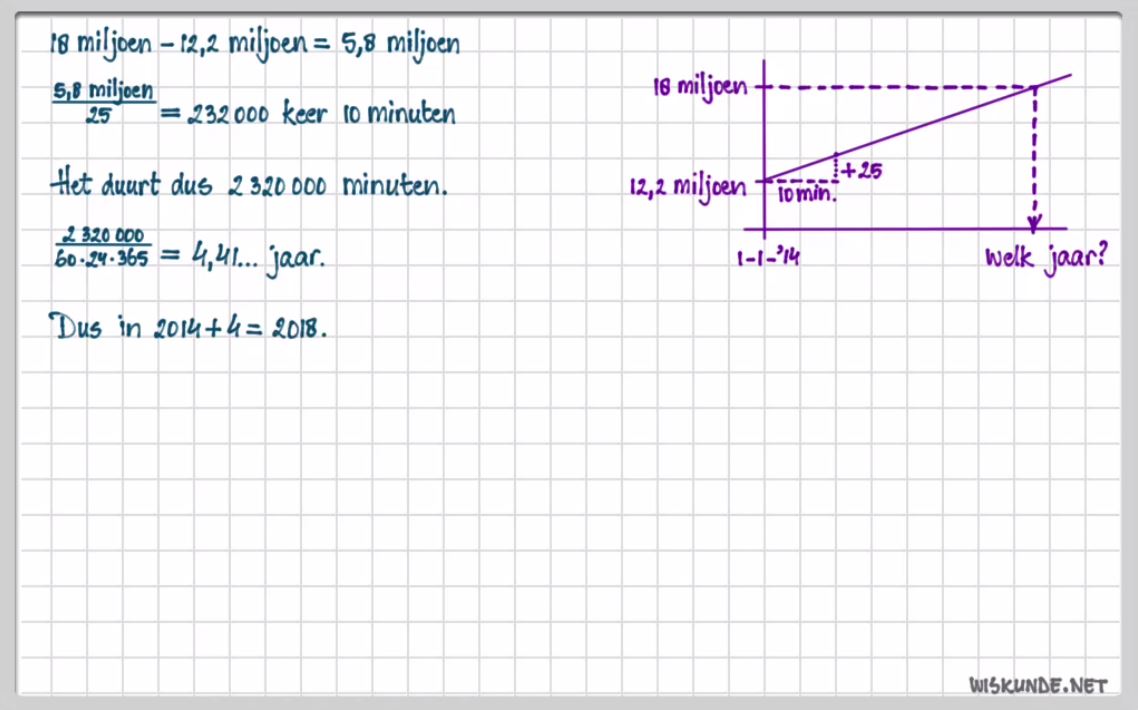 18 miljoen - 12,2 miljoen = 5,8 miljoen
5,8 miljoen
25
= 232 000 keer 10 minuten
Het duurt dus 2 320 000 minuten.
2 320 000
60·24·365
= 4,41... jaar.
Dus in 2014 + 4 = 2018.
18 miljoen
12,2 miljoen
+25
10 min.
1-1-'14
welk jaar?
WISKUNDE.NET